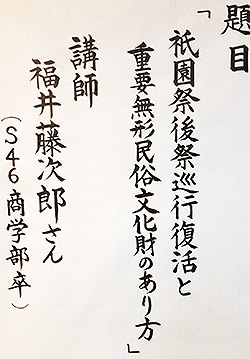 題目
「祇園祭後祭巡行復活と
重要無形民俗文化財のあり方」
講師
福井藤次郎さん
（S46商学部卒）